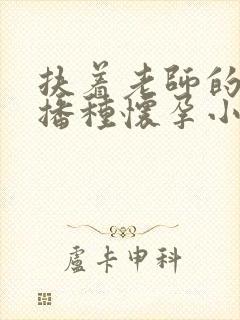 扶着老師的
播種懷孕小
盧卡申科